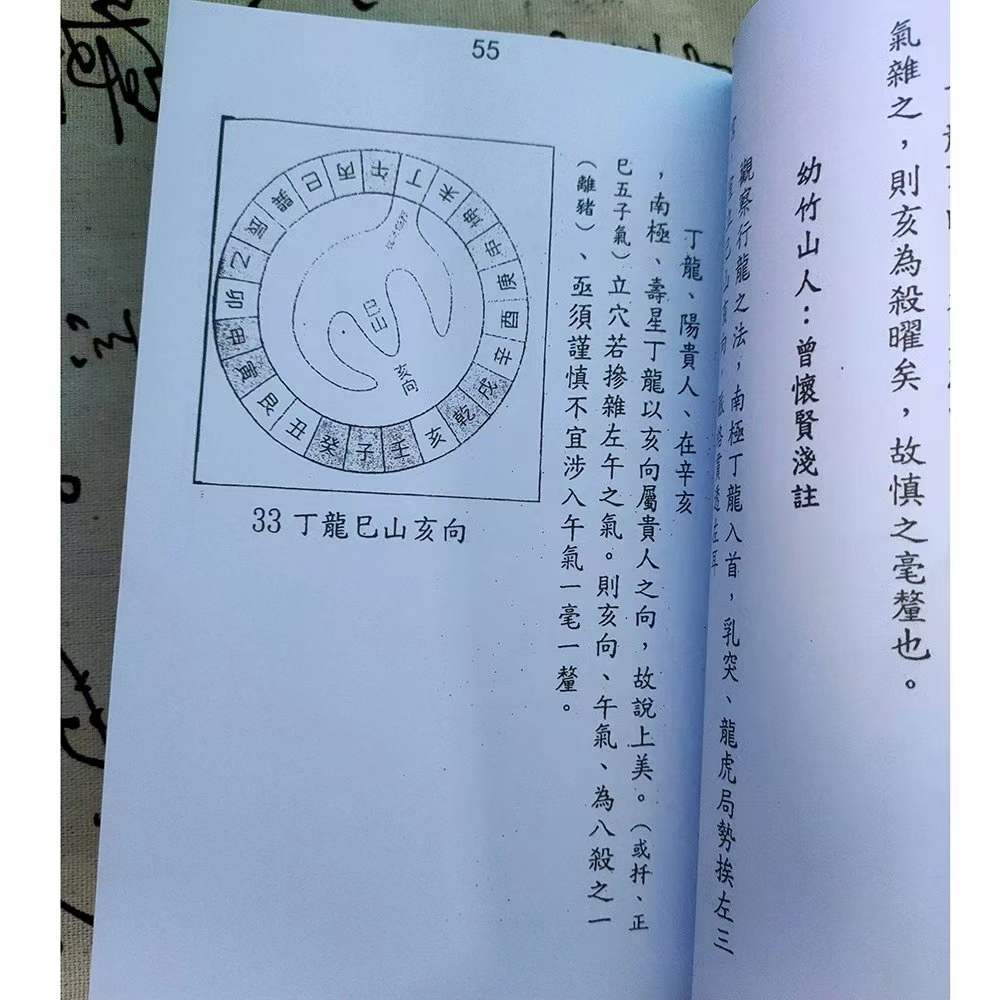 氣雜之，則亥為殺曜矣，故慎之毫釐也。
幼竹山人：曾懷賢淺註
觀察行龍之法，南極丁龍入首，乳突、龍虎局勢挨左三
巳山亥向
55
丁龍、陽貴人、在辛亥
，南極、壽星丁龍以亥向屬貴人之向，故說上美。（或扦、正
巳五子氣）立穴若摻雜左午之氣。則亥向、午氣、為八殺之一
（離豬）、亟須謹慎不宜涉入午氣一毫一釐。
午丁未坤申庚酉辛戌乾亥壬子癸丑艮寅甲卯乙辰巽巳丙
巳山
亥向
33 丁龍巳山亥向